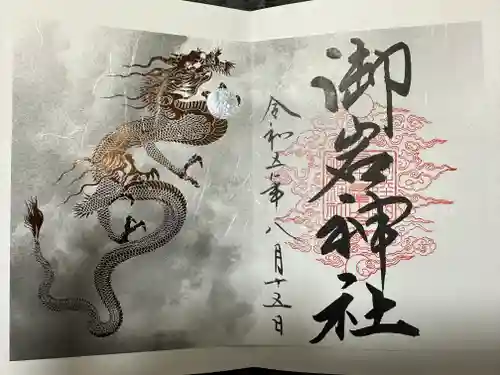 御岩神社
令和五年八月十五日